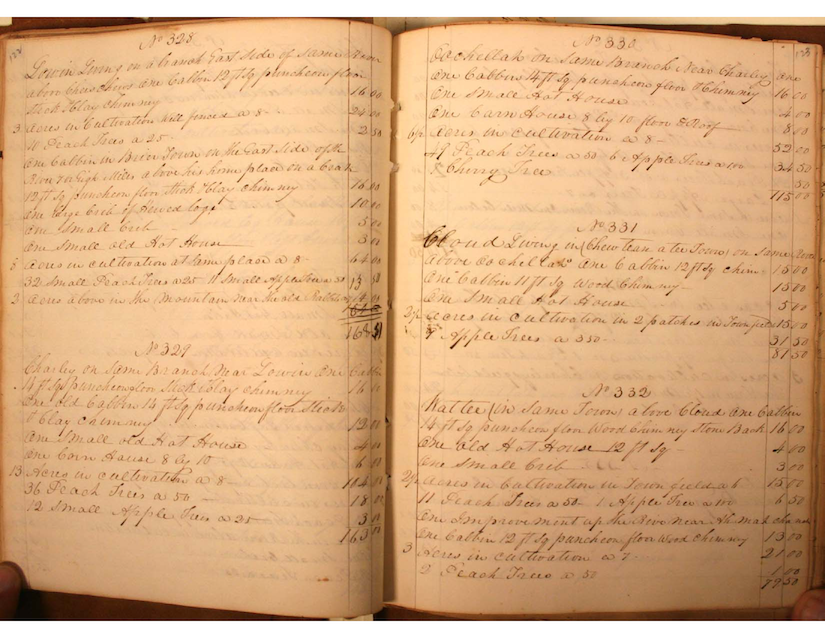 No 328
Lowin Living on a branch East side of same River
above one Cabbin 12 ft Sq puncheon floor
Stick & Clay Chimney 16 00
24 00
3 Acres in Cultivation well fenced a 8 2 50
10 Peach Trees a 25
One Cabbin in Town on the East Side of the
River Miles above his home place on a
12 ft Sq puncheon floor Stick & Clay chimney 16 00
One large Crib of Hewed logs 10 00
One Small Crib 5 00
One Small old Hot House 3 00
Acres in cultivation at Same place a 8 64 00
32 Small Peach Trees a 25 Small Apple Trees a 50 13
Acres above in the Mountain Near the old
168
No 329
Charley on Same Branch Near Lowin One Cabbin
14 ft Sq puncheon floor Stick & Clay Chimney 16
One old Cabbin 14 ft Sq puncheon floor Stick
& Clay Chimney 12 00
One Small old Hot House 4 00
One Corn House 8 by 10 6 00
13 Acres in Cultivation a 8 114 00
36 Peach Trees a 50 18 00
12 Small Apple Trees a 25 3 00
163
No 330
on Same Branch Near Charley One
One Cabbin 14 ft Sq puncheon floor & Chimney 16 00
One Small Hot House 4 00
One Corn House 8 by 10 floor & Roof 8 00
Acres in Cultivation a 8 52 00
Peach Trees a 50 6 Apple Trees a 100 34 50
Cherry Tree 50
115 00
No 331
Cloud Living in (Town) on Same River
above One Cabbin 12 ft Sq Chim 15 00
One Cabbin 11 ft Sq Wood Chimney 15 00
One Small Hot House 5 00
Acres in Cultivation in 2 patches in Town 15 00
9 Apple Trees a 350 31 50
81 50
No 332
(in Same Town) above Cloud One Cabbin
14 ft Sq puncheon floor Wood Chimney Stone Back 16 00
One old Hot House 12 ft Sq 4 00
One Small Crib 3 00
Acres in Cultivation in Town field a 6 15 00
11 Peach Trees a 50 1 Apple Tree a 100 6 50
One Improvement up the River near
One Cabbin 12 ft Sq puncheon floor Wood Chimney 13 00
3 Acres in Cultivation a 7 21 00
2 Peach Trees a 50 1 00
79 50